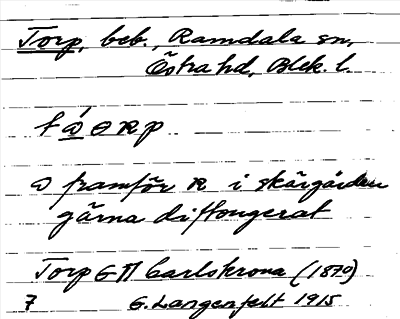 Torp, beb., Ramdala sn,
Östra hd, Blek. l.
a framför R i skärgården
gärna diftongerat
Torp GM Carlskrona (1870)
7 G. Langenfelt 1915